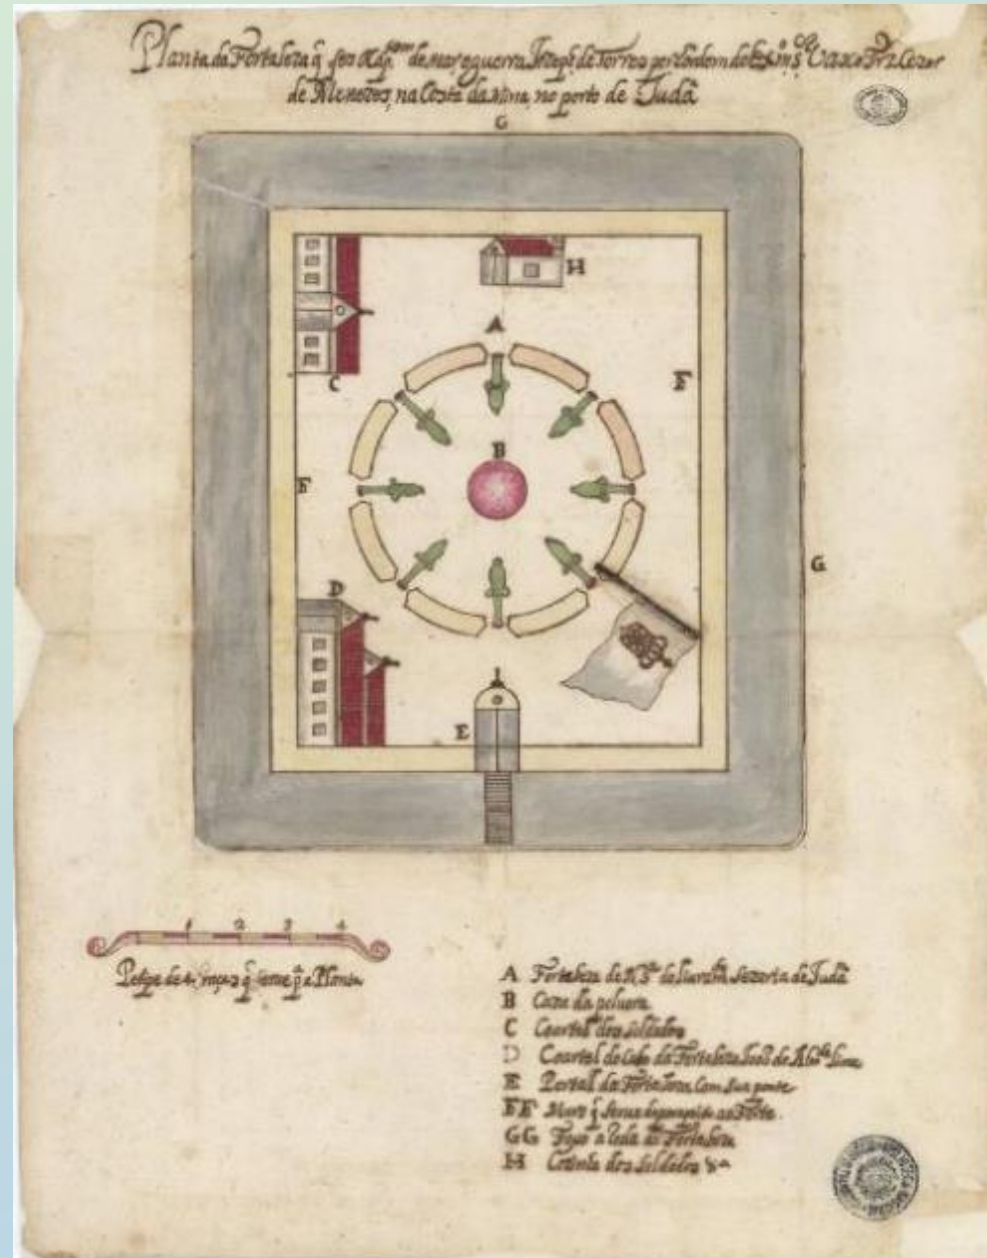 Planta da Fortaleza q̃ fes o Cap.ᵃᵐ de mar e guerra Joseph de Torres per ordem do Exᵐᵒ Sʳ Vasco Frz Cezar
de Menezes, na Costa da Mina, no porto de Judâ
G
H
A
C
F
B
F
G
D
E
1 2 3 4
Petipe de 4 q̃ serue pª a Planta
A Fortaleza de N. Sª do Cezaria de Judâ
B Caza da poluora
C Coartel dos soldados
D Coartel do Cabo da Fortaleza
E Portal da Fortaleza Com sua ponte
FF Muro q̃ serue de parapeito ao Forte.
GG Foço a roda da Fortaleza
H Cozinha dos soldados &ª